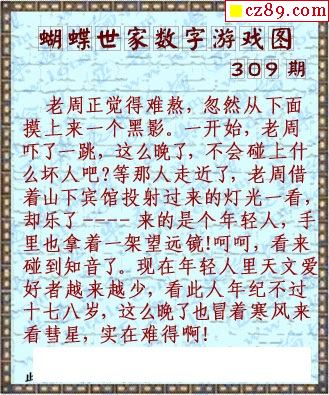 cz89.com
蝴蝶世家数字游戏图
309 期
老周正觉得难熬，忽然从下面
摸上来一个黑影。一开始，老周
吓了一跳，这么晚了，不会碰上什
么坏人吧？等那人走近了，老周借
着山下宾馆投射过来的灯光一看，
却乐了---- 来的是个年轻人，手
里也拿着一架望远镜！呵呵，看来
碰到知音了。现在年轻人里天文爱
好者越来越少，看此人年纪不过
十七八岁，这么晚了也冒着寒风来
看彗星，实在难得啊！